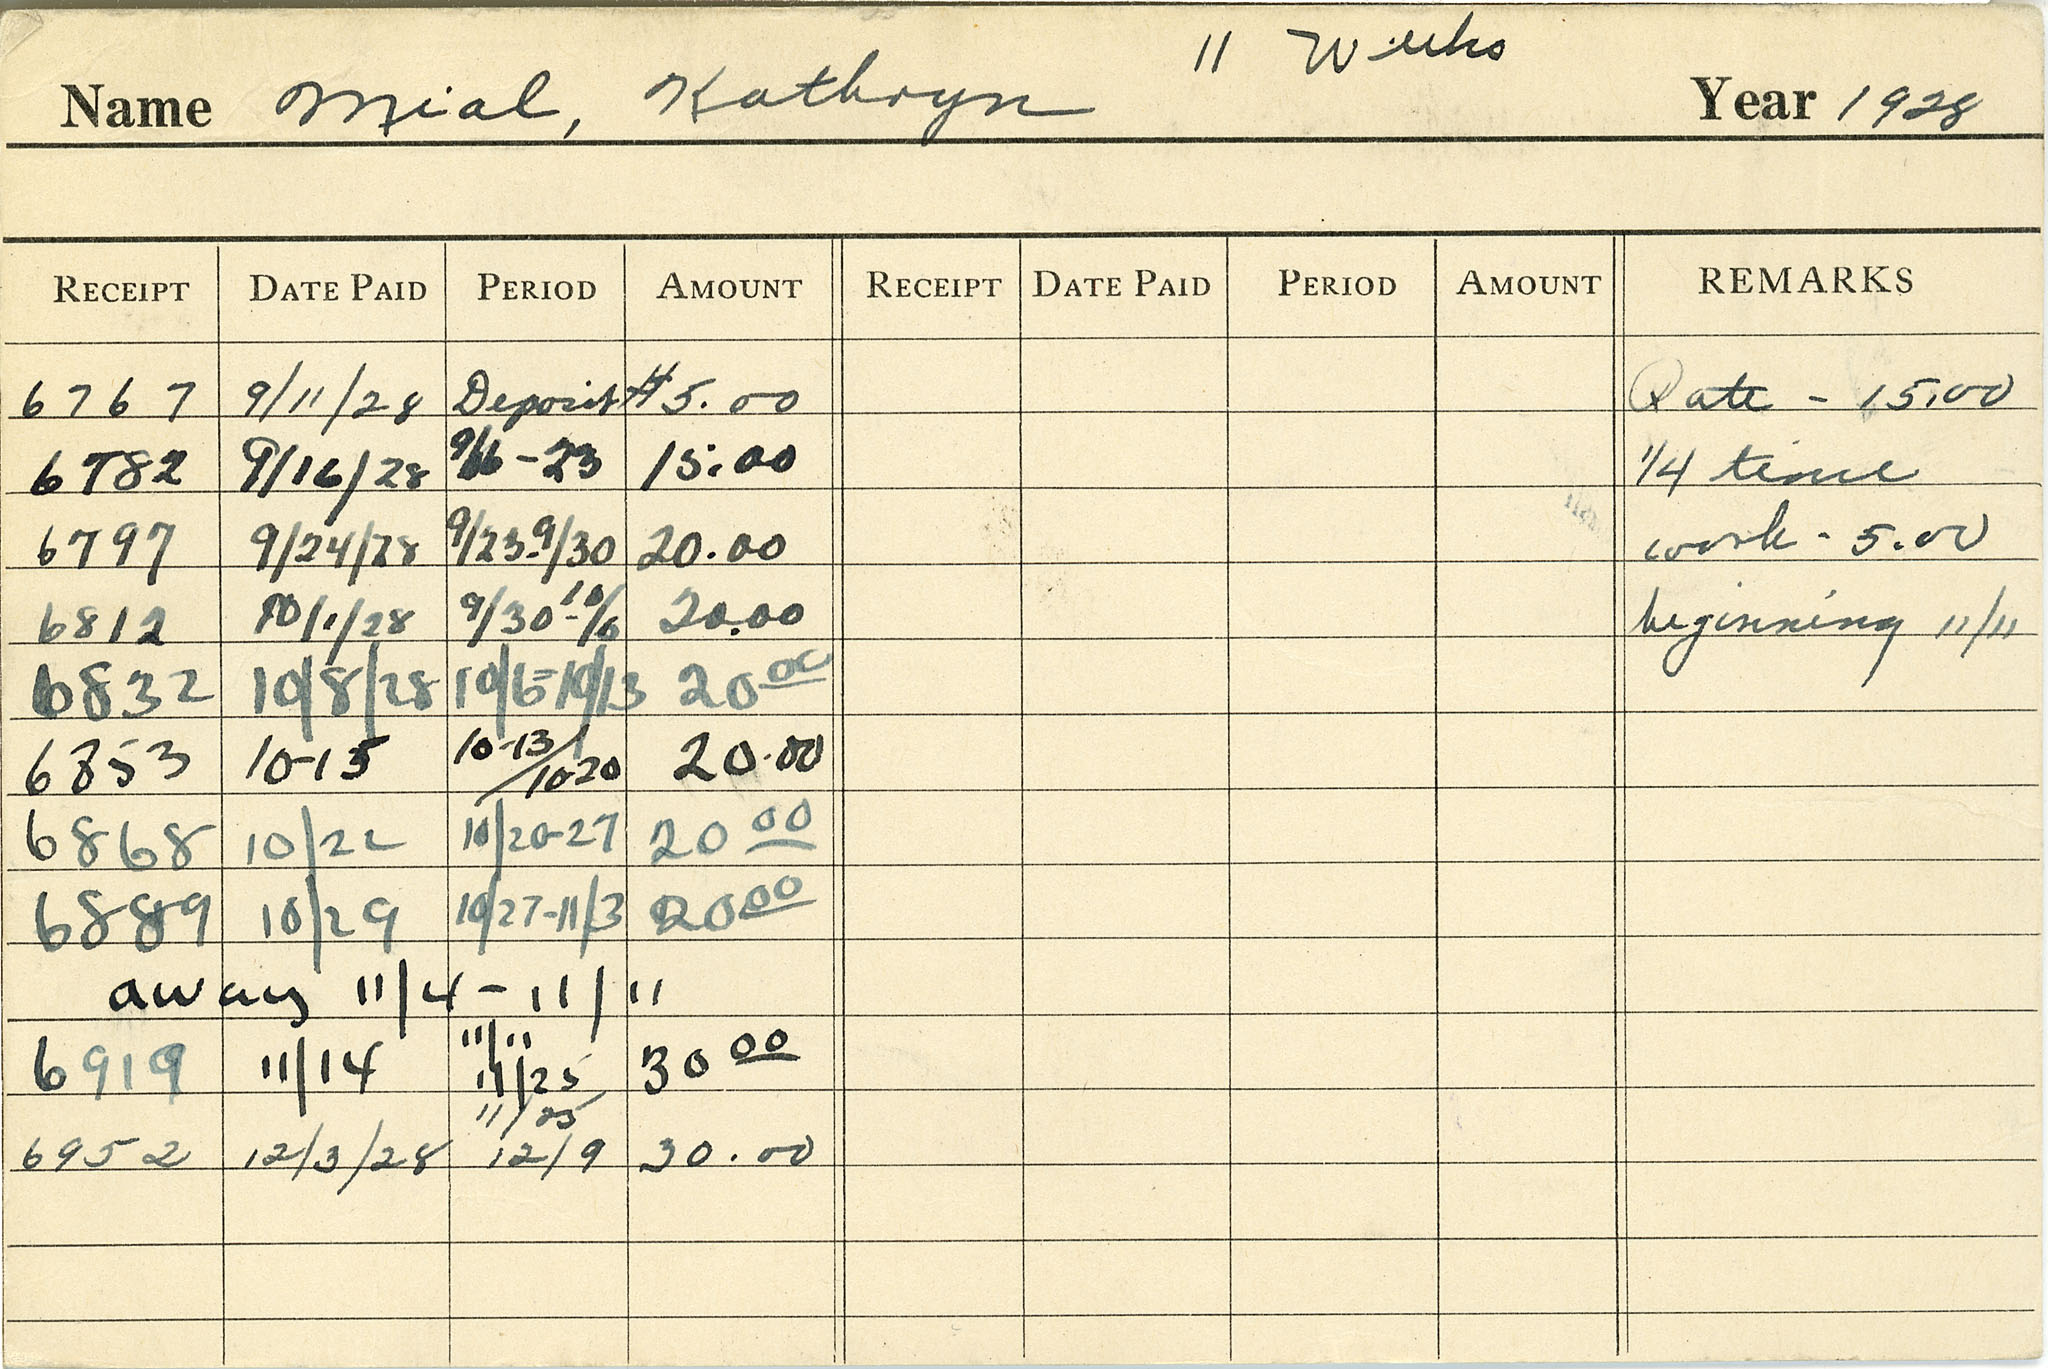 11 Weeks
Name Mial, Kathryn Year 1928
RECEIPT DATE PAID PERIOD AMOUNT RECEIPT DATE PAID PERIOD AMOUNT REMARKS
6767 9/11/28 Deposit $5.00 Rate - 15.00
6782 9/16/28 9/16-23 15.00 1/4 time
6797 9/24/28 9/23-9/30 20.00 work - 5.00
6812 10/1/28 9/30-10/6 20.00 beginning 11/11
6832 10/8/28 10/6-10/13 20 00
6853 10-15 10-13/10-20 20.00
6868 10/22 10/20-27 20 00
6889 10/29 10/27-11/3 20 00
away 11/4-11/11
6919 11/14 11/11 11/25 30 00
6952 12/3/28 11/25 12/9 30.00